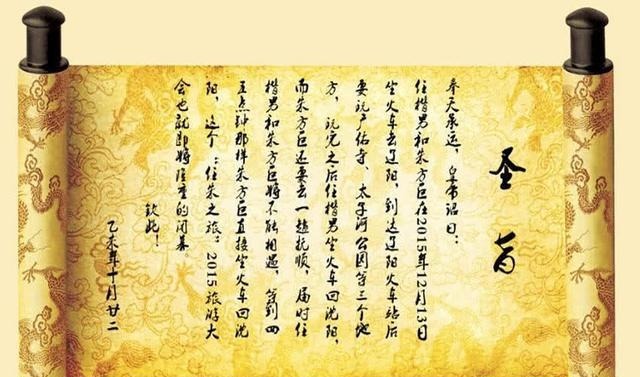 圣旨
奉天承运，皇帝诏曰：
任楷男和朱方巨在2015年12月13日
坐火车去辽阳，到达辽阳火车站后
要玩广佑寺、太子河公园等三个地
方，玩完之后任楷男坐火车回沈阳，
而朱方巨还要去一趟抚顺，届时任
楷男和朱方巨将不能相遇，等到四
五点钟那样朱方巨直接坐火车回沈
阳，这个：任朱之旅：2015旅游大
会也就即将隆重的闭幕。
钦此！
乙未年十月廿二